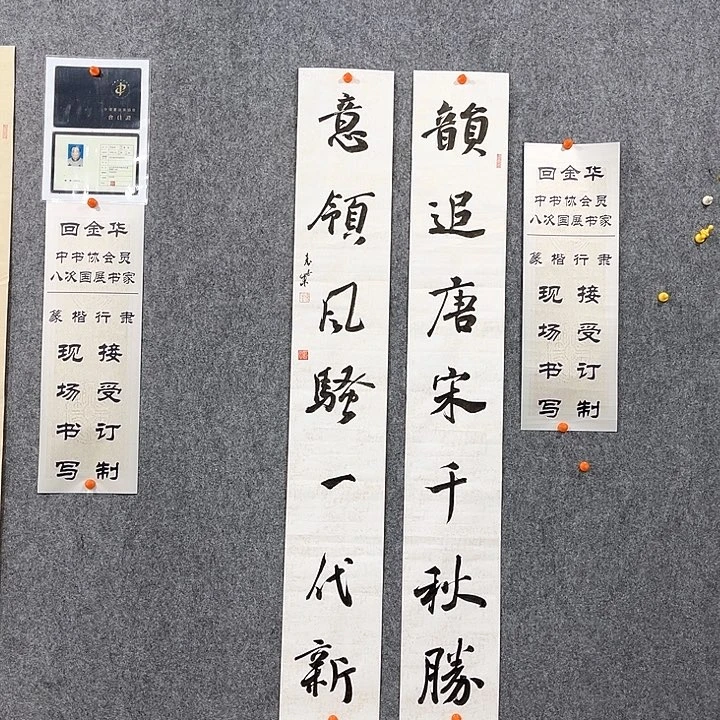 會員證
回金华
中书协会员
八次国展书家
篆楷行隶
接受订制
现场书写
韻追唐宋千秋勝
意領风騷一代新
回金华
中书协会员
八次国展书家
篆楷行隶
接受订制
现场书写